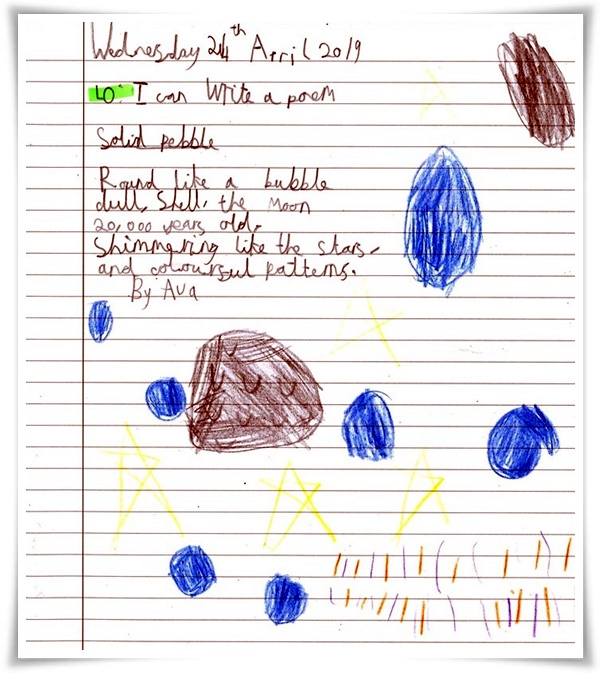 Wednesday 24th April 2019
LO: I can write a poem
Solid pebble
Round like a bubble
dull, Shell, the Moon
20,000 years old.
Shimmering like the stars,
and colourful patterns.
By Ava